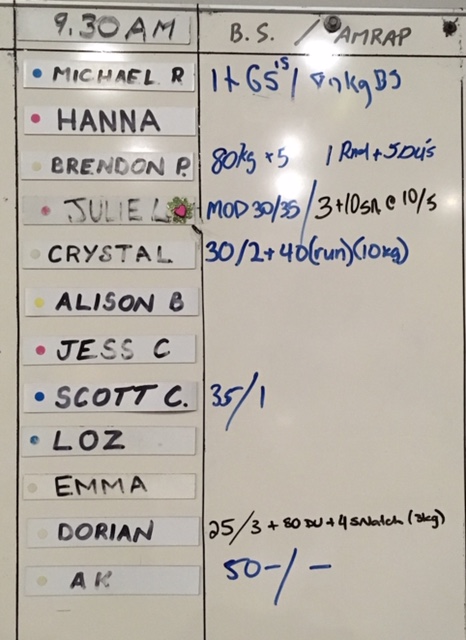 9.30 AM B.S. / AMRAP
MICHAEL R 1+ 65'S / kg BS
HANNA
BRENDON P. 80kg x 5 1 Rnd + 5 DU's
JULIE L MOD 30/35 / 3+10 @ 10/5
CRYSTAL 30/2+40(run)(10kg)
ALISON B
JESS C
SCOTT C. 35/1
LOZ
EMMA
DORIAN 25/3 + 80 DU + 4 SNatch (8kg)
AK 50-/-